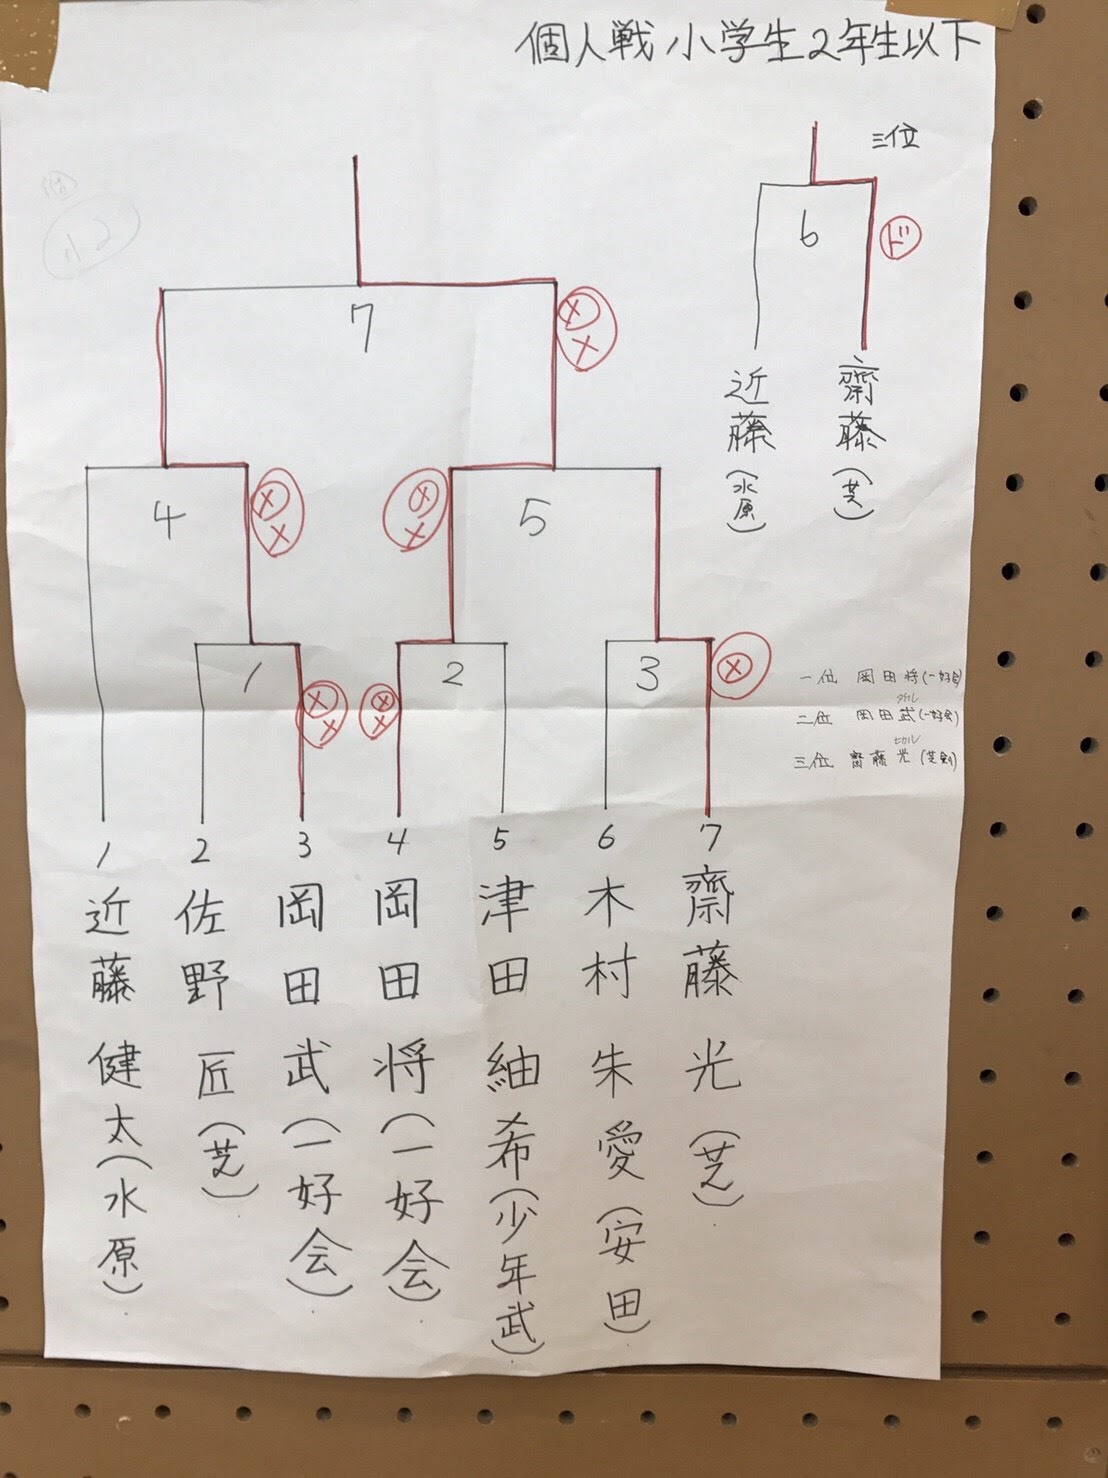 個人戦 小学生2年生以下
三位
6
ド
近藤(水原)
齋藤(芝)
7
メ
メ
4
メ
メ
5
メ
メ
1
メ
メ
2
メ
メ
3
メ
一位 岡田将(一好会)
タケル
二位 岡田武(一好会)
ヒカル
三位 齋藤光(芝剣)
1 近藤 健太(水原)
2 佐野 匠(芝)
3 岡田 武(一好会)
4 岡田 将(一好会)
5 津田 紬希(少年武)
6 木村 朱愛(安田)
7 齋藤 光(芝)